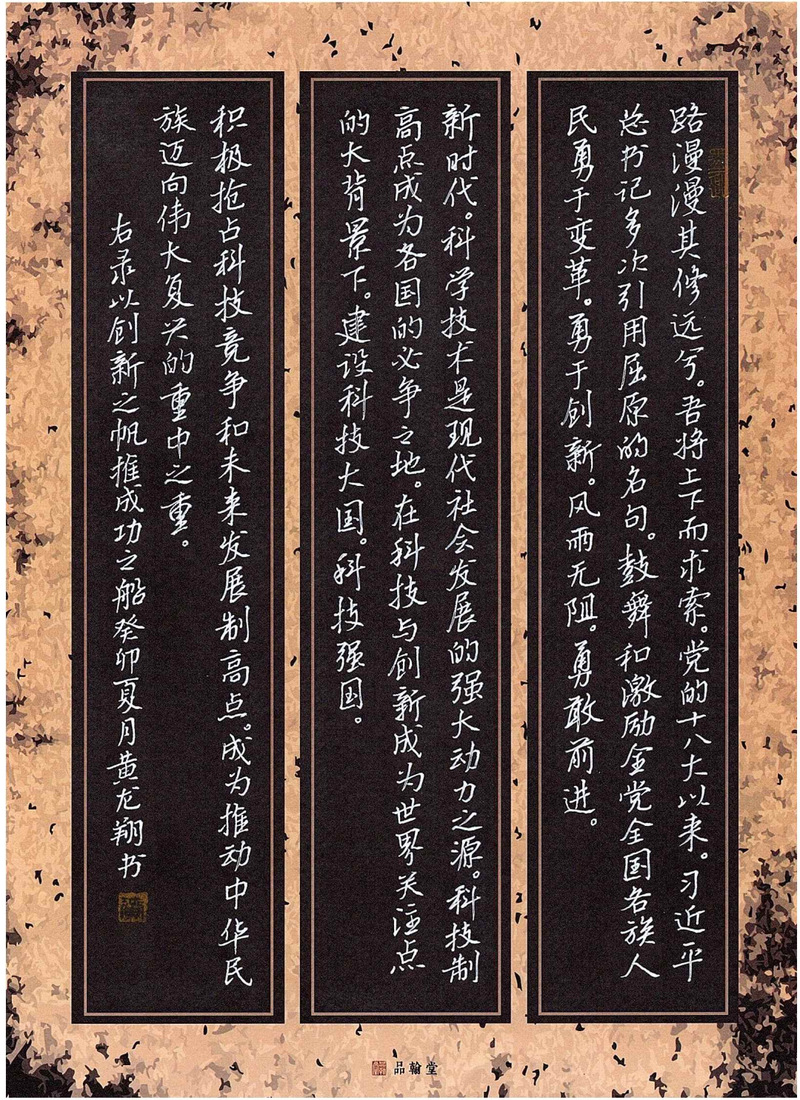 路漫漫其修远兮。吾将上下而求索。党的十八大以来。习近平
总书记多次引用屈原的名句。鼓舞和激励全党全国各族人
民勇于变革。勇于创新。风雨无阻。勇敢前进。
新时代。科学技术是现代社会发展的强大动力之源。科技制
高点成为各国的必争之地。在科技与创新成为世界关注点
的大背景下。建设科技大国。科技强国。
积极抢占科技竞争和未来发展制高点。成为推动中华民
族迈向伟大复兴的重中之重。
右录以创新之帆推成功之船癸卯夏月黄龙翔书
品翰堂